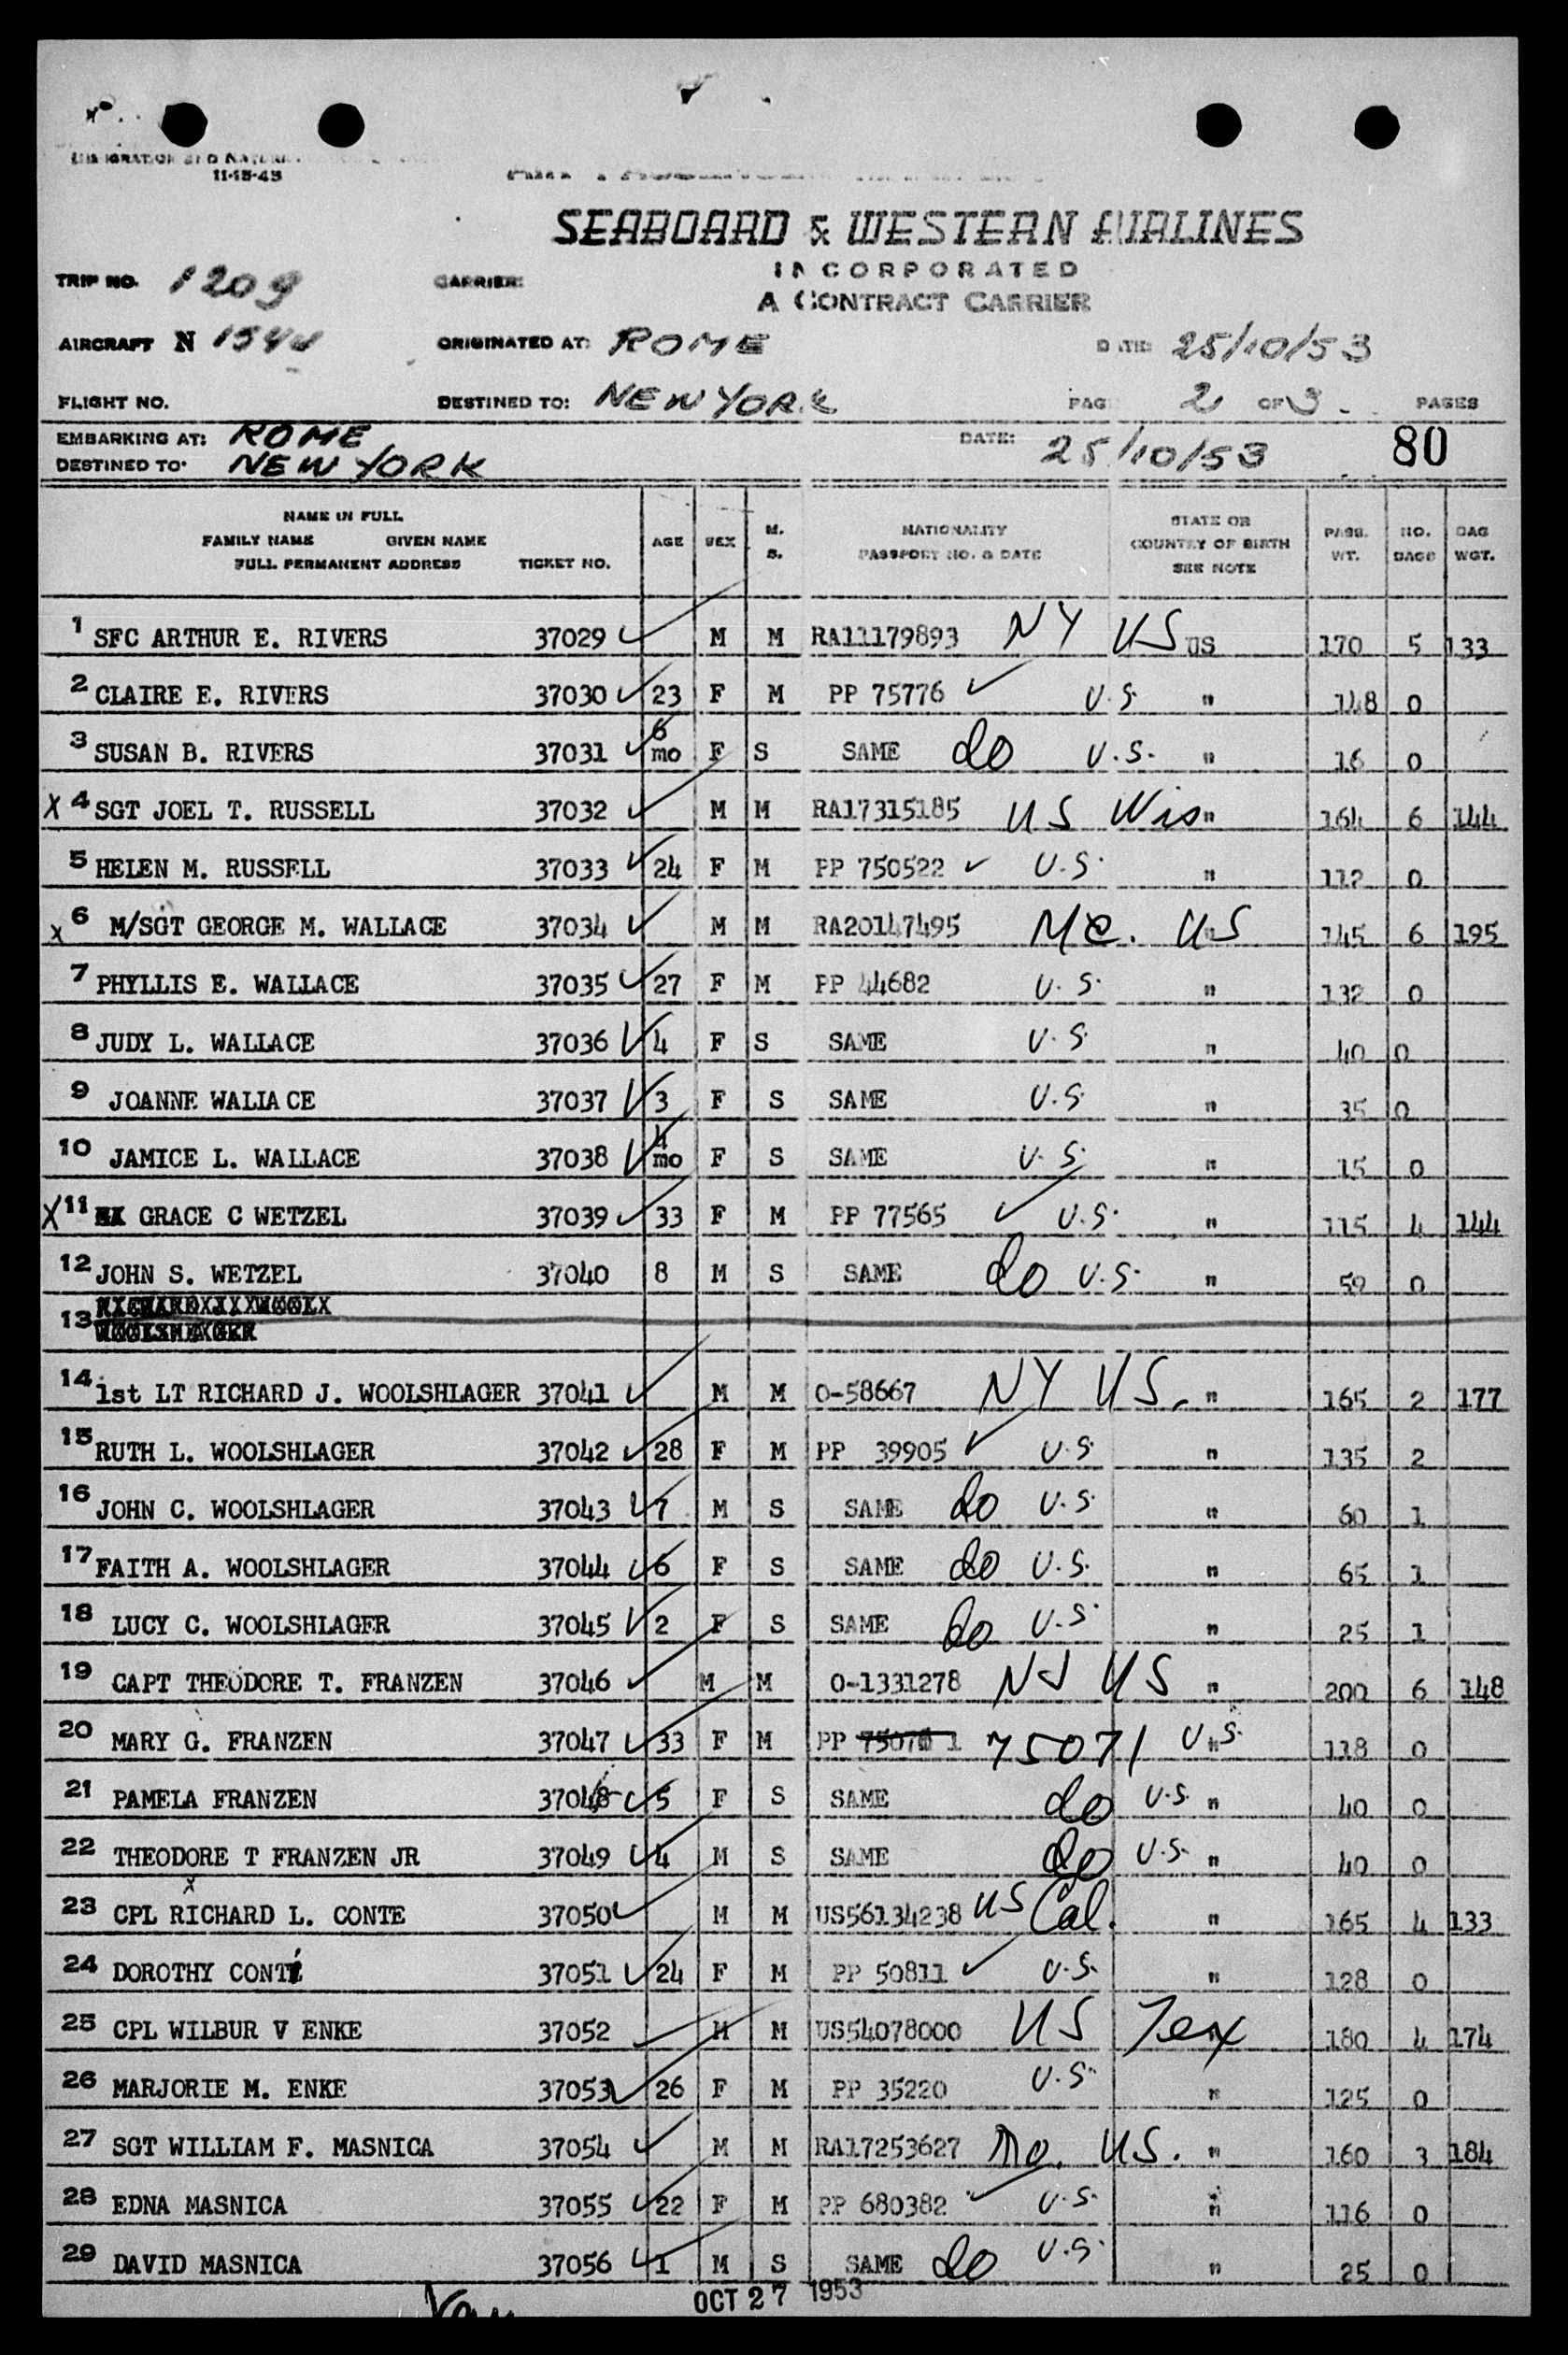 11-15-43
SEABOARD & WESTERN AIRLINES
INCORPORATED
A CONTRACT CARRIER
TRIP NO. 1209 CARRIER:
AIRCRAFT N ORIGINATED AT: ROME DATE: 25/10/53
FLIGHT NO. DESTINED TO: NEW YORK PAG 2 OF 3 PAGES
EMBARKING AT: ROME DATE: 25/10/53 80
DESTINED TO: NEW YORK
NAME IN FULL
FAMILY NAME GIVEN NAME
FULL PERMANENT ADDRESS TICKET NO. AGE SEX M. S. NATIONALITY PASSPORT NO. & DATE STATE OR COUNTRY OF BIRTH SEE NOTE PASS. WT. NO. BAGS BAG WGT.
1 SFC ARTHUR E. RIVERS 37029 M M RA11179893 NY US US 170 5 133
2 CLAIRE E. RIVERS 37030 23 F M PP 75776 U.S. " 148 0
3 SUSAN B. RIVERS 37031 6 mo F S SAME do U.S. " 16 0
X 4 SGT JOEL T. RUSSELL 37032 M M RA17315185 US Wis " 164 6 144
5 HELEN M. RUSSELL 37033 24 F M PP 750522 U.S. " 112 0
x 6 M/SGT GEORGE M. WALLACE 37034 M M RA20147495 Me. US " 145 6 195
7 PHYLLIS E. WALLACE 37035 27 F M PP 44682 U.S. " 132 0
8 JUDY L. WALLACE 37036 4 F S SAME U.S. " 40 0
9 JOANNE WALIACE 37037 3 F S SAME U.S. " 35 0
10 JAMICE L. WALLACE 37038 4 mo F S SAME U.S. " 15 0
X 11 GRACE C WETZEL 37039 33 F M PP 77565 U.S. " 115 4 144
12 JOHN S. WETZEL 37040 8 M S SAME do U.S. " 59 0
13
14 1st LT RICHARD J. WOOLSHLAGER 37041 M M O-58667 NY US. " 165 2 177
15 RUTH L. WOOLSHLAGER 37042 28 F M PP 39905 U.S. " 135 2
16 JOHN C. WOOLSHLAGER 37043 7 M S SAME do U.S. " 60 1
17 FAITH A. WOOLSHLAGER 37044 6 F S SAME do U.S. " 65 1
18 LUCY C. WOOLSHLAGER 37045 2 F S SAME do U.S. " 25 1
19 CAPT THEODORE T. FRANZEN 37046 M M O-1331278 NJ US " 200 6 148
20 MARY G. FRANZEN 37047 33 F M PP 75071 U.S. " 118 0
21 PAMELA FRANZEN 37048 5 F S SAME do U.S. " 40 0
22 THEODORE T FRANZEN JR 37049 4 M S SAME do U.S. " 40 0
23 CPL RICHARD L. CONTE 37050 M M US56134238 US Cal. " 165 4 133
24 DOROTHY CONTE 37051 24 F M PP 50811 U.S. " 128 0
25 CPL WILBUR V ENKE 37052 M M US54078000 US Tex " 180 4 174
26 MARJORIE M. ENKE 37053 26 F M PP 35220 U.S. " 125 0
27 SGT WILLIAM F. MASNICA 37054 M M RA17253627 Mo. US. " 160 3 184
28 EDNA MASNICA 37055 22 F M PP 680382 U.S. " 116 0
29 DAVID MASNICA 37056 1 M S SAME do U.S. " 25 0
OCT 27 1953